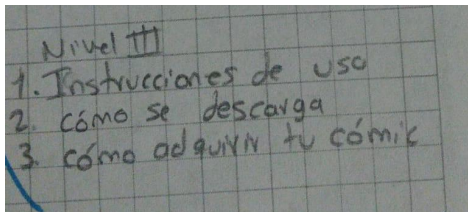 Nivel III
1. Instrucciones de uso
2. cómo se descarga
3. cómo adquirir tu cómic